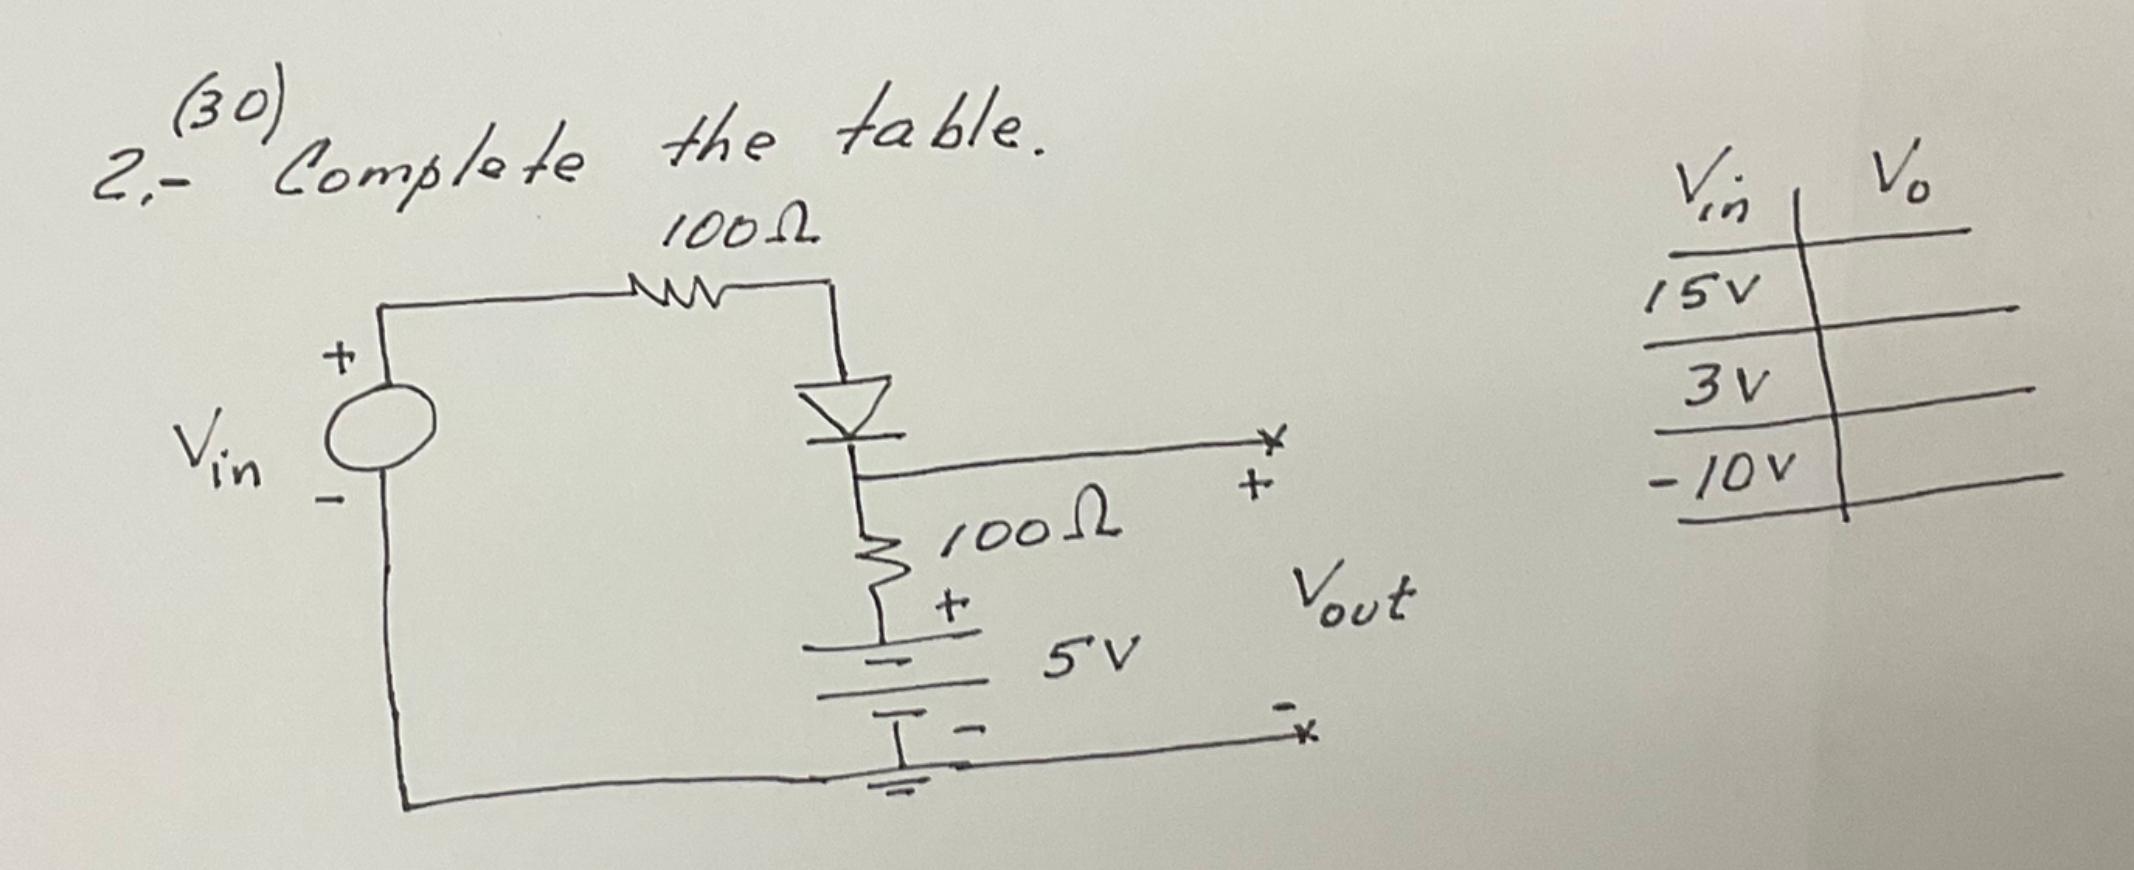 (30)
2.- Complete the table.
100Ω
+
Vin
-
+
100Ω
Vout
+
5V
-
-
Vin Vo
15V
3V
-10V